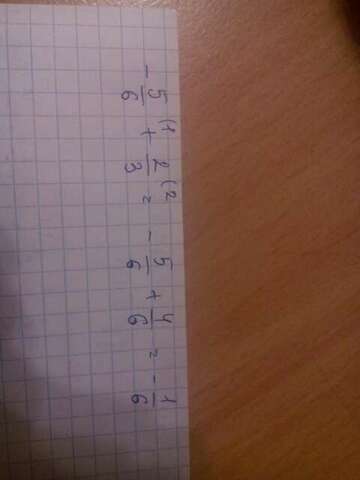 -5/6 (1 + 2/3 (2 = -5/6 + 4/6 = -1/6